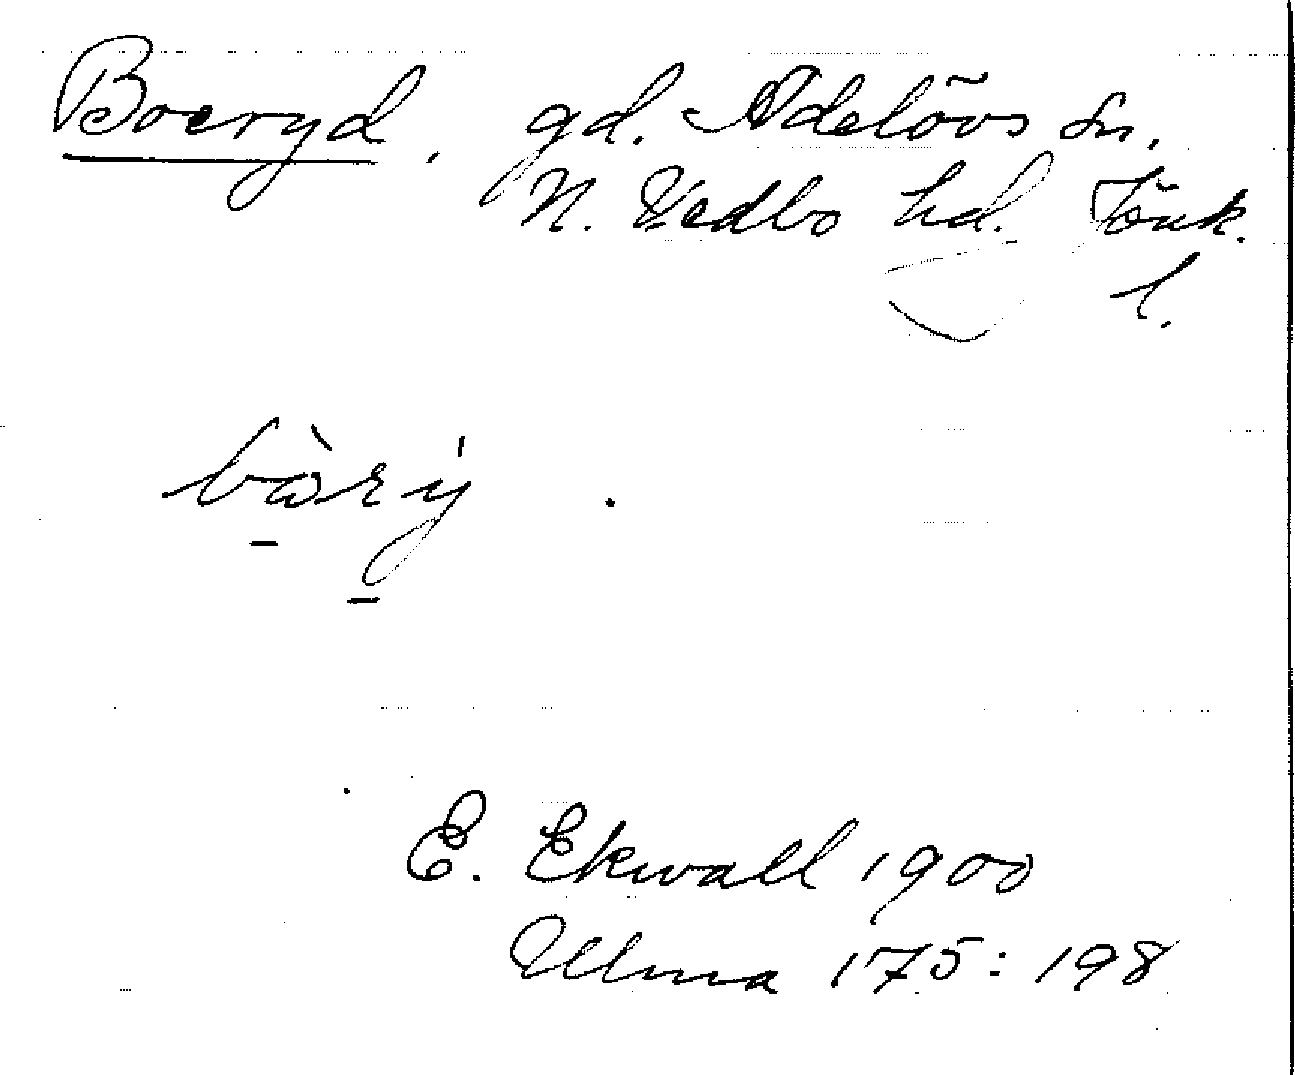 Boeryd, gd. Adelövs sn.
N. Vedbo hd. Jönk.
l.
E. Ekwall 1900
Ulma 175:198